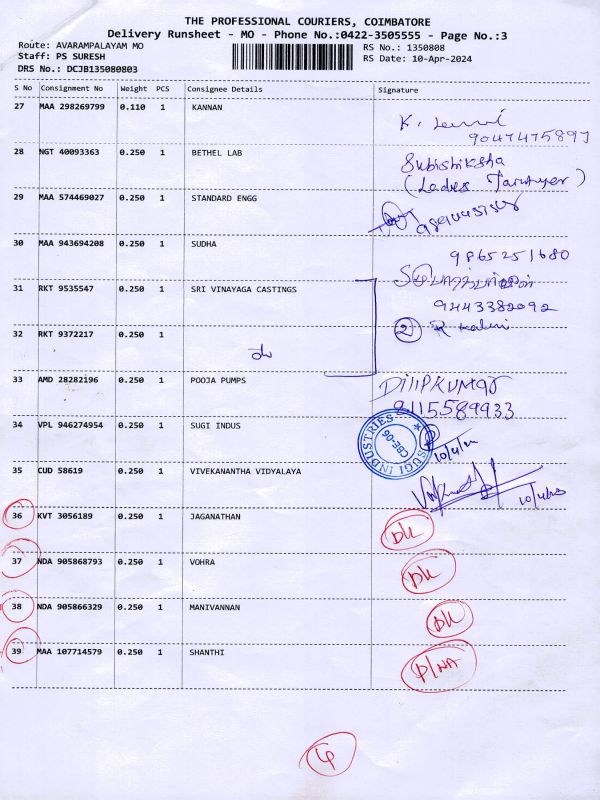 THE PROFESSIONAL COURIERS, COIMBATORE
Delivery Runsheet - MO - Phone No.:0422-3505555 - Page No.:3
Route: AVARAMPALAYAM MO RS No.: 1350808
Staff: PS SURESH RS Date: 10-Apr-2024
DRS No.: DCJB135080803
S No Consignment No Weight PCS Consignee Details Signature
27 MAA 298269799 0.110 1 KANNAN
K.
28 NGT 40093363 0.250 1 BETHEL LAB
Subishiksha
(Ladies
29 MAA 574469027 0.250 1 STANDARD ENGG
30 MAA 943694208 0.250 1 SUDHA
9865251680
31 RKT 9535547 0.250 1 SRI VINAYAGA CASTINGS
9443382092
32 RKT 9372217 0.250 1
2 R
33 AMD 28282196 0.250 1 POOJA PUMPS
DilipKumar
9115589933
34 VPL 946274954 0.250 1 SUGI INDUS
SUGI INDUSTRIES
CBE-06
35 CUD 58619 0.250 1 VIVEKANANTHA VIDYALAYA
36 KVT 3056189 0.250 1 JAGANATHAN DK
37 NDA 905868793 0.250 1 VOHRA DK
38 NDA 905866329 0.250 1 MANIVANNAN DK
39 MAA 107714579 0.250 1 SHANTHI P/NA